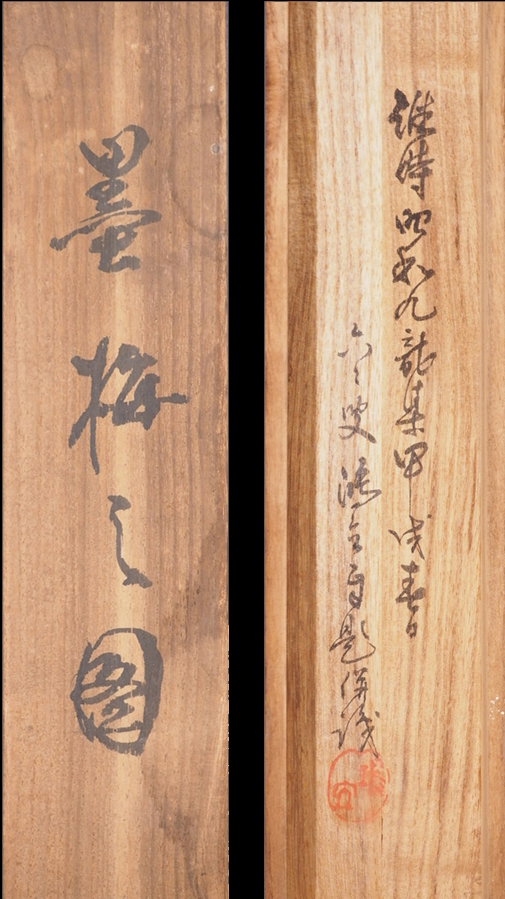 墨梅之圖
維時昭和九龍集甲戌春日
六々叟自題併識